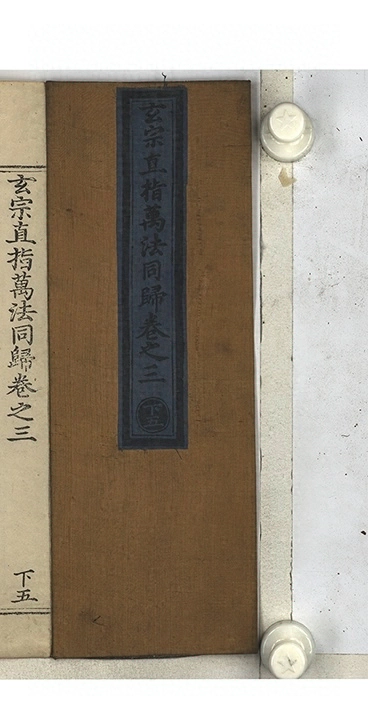 玄宗直指萬法同歸卷之三
下五
玄宗直指萬法同歸卷之三
下五